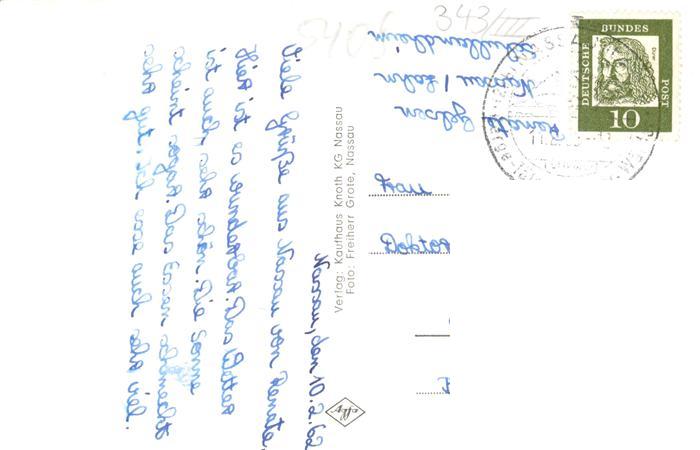 Nassau, den 10.2.62
Viele Grüße aus Nassau von Renate.
Hier ist es wunderbar. Das Wetter
ist auch sehr schön. Die Sonne
scheint sogar. Das Essen schmeckt
sehr gut. Ich esse auch sehr viel.
Verlag: Kaufhaus Knoth KG. Nassau
Foto: Freiherr Grote, Nassau
Renate
Nassau / Lahn
Schullandheim
343/III
DEUTSCHE BUNDESPOST
10
Frau
Doktor